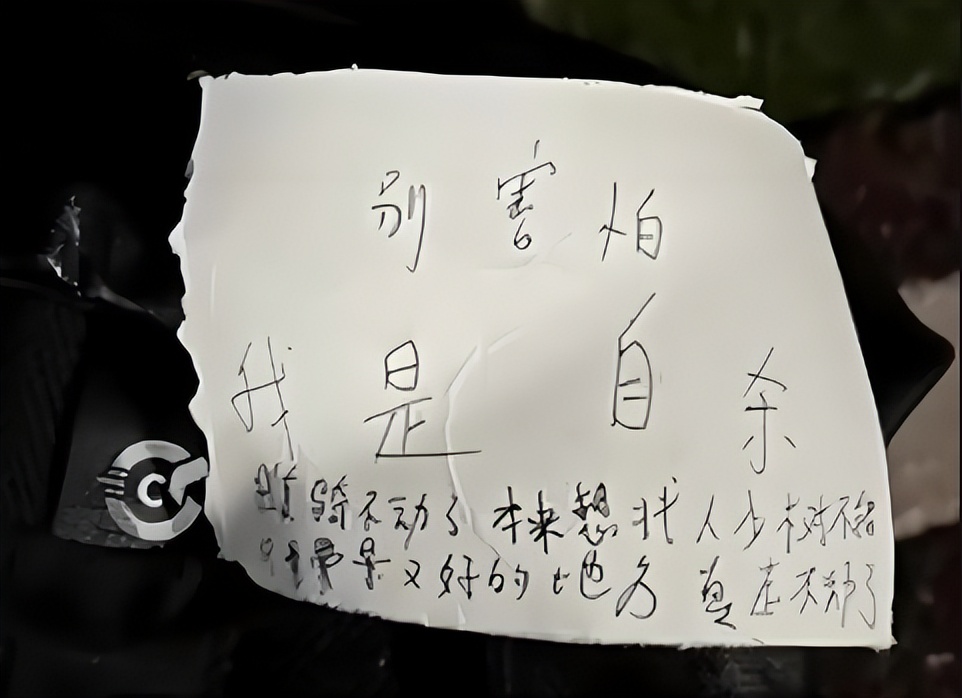 别害怕
我是自杀
骑不动了 本来想找人少树不错
景又好的地方 真走不动了
C